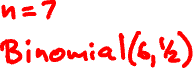 n=7
Binomial(6,½)